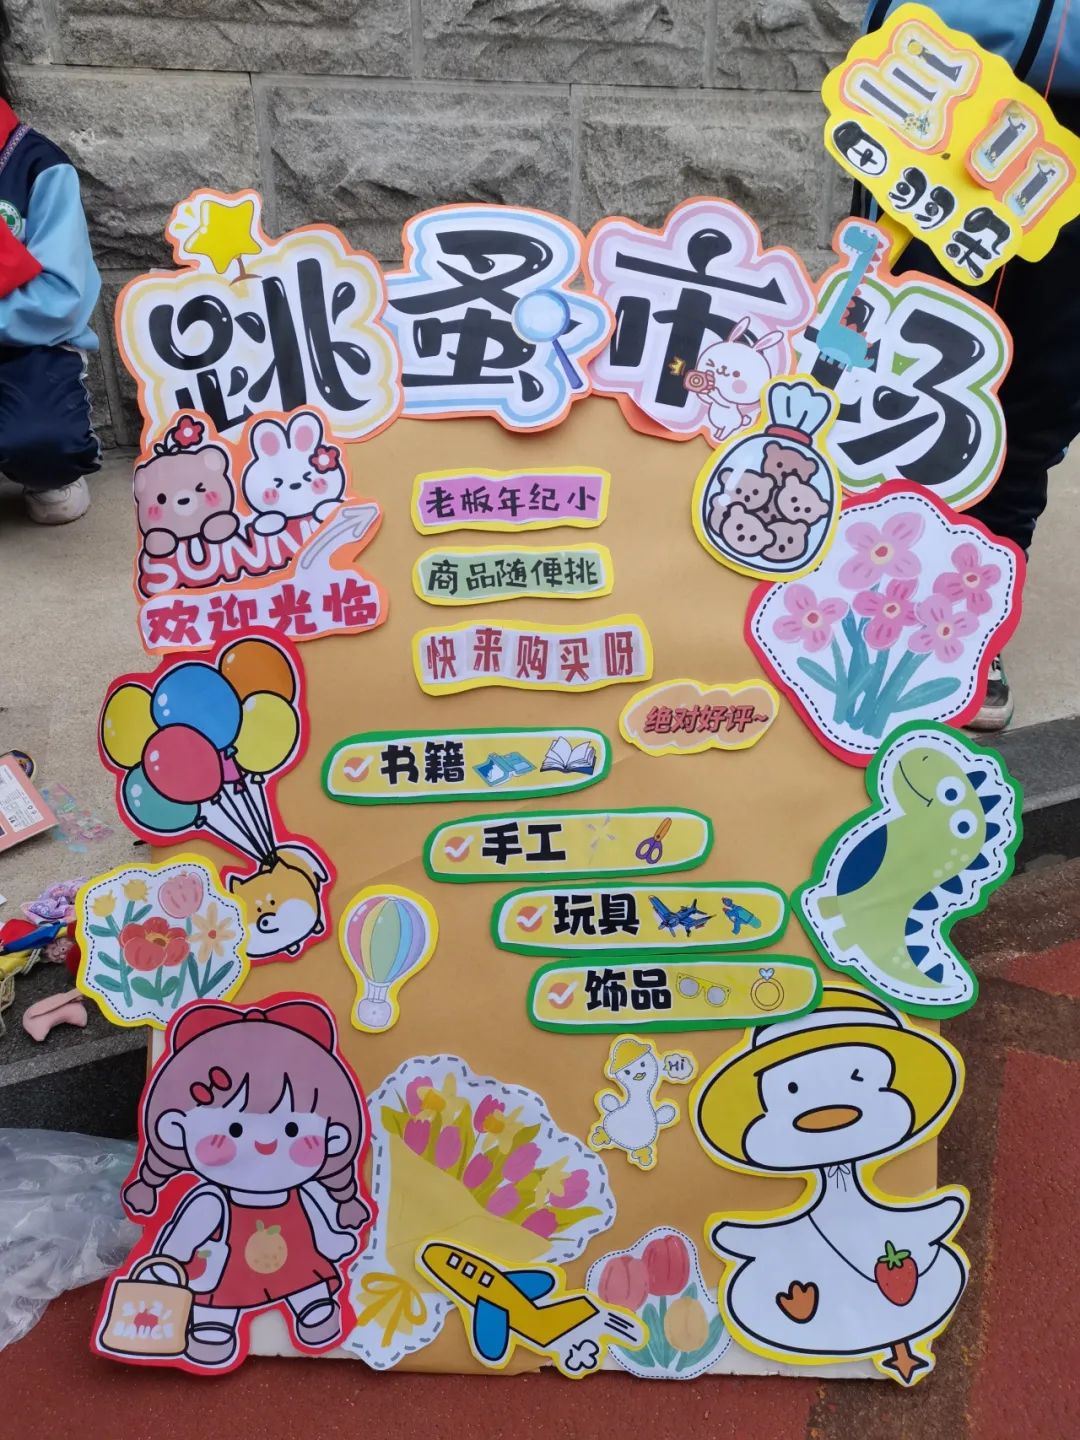 跳蚤市场
SUNNY
欢迎光临
老板年纪小
商品随便挑
快来购买呀
绝对好评~
书籍
手工
玩具
饰品
Hi
SAUCE